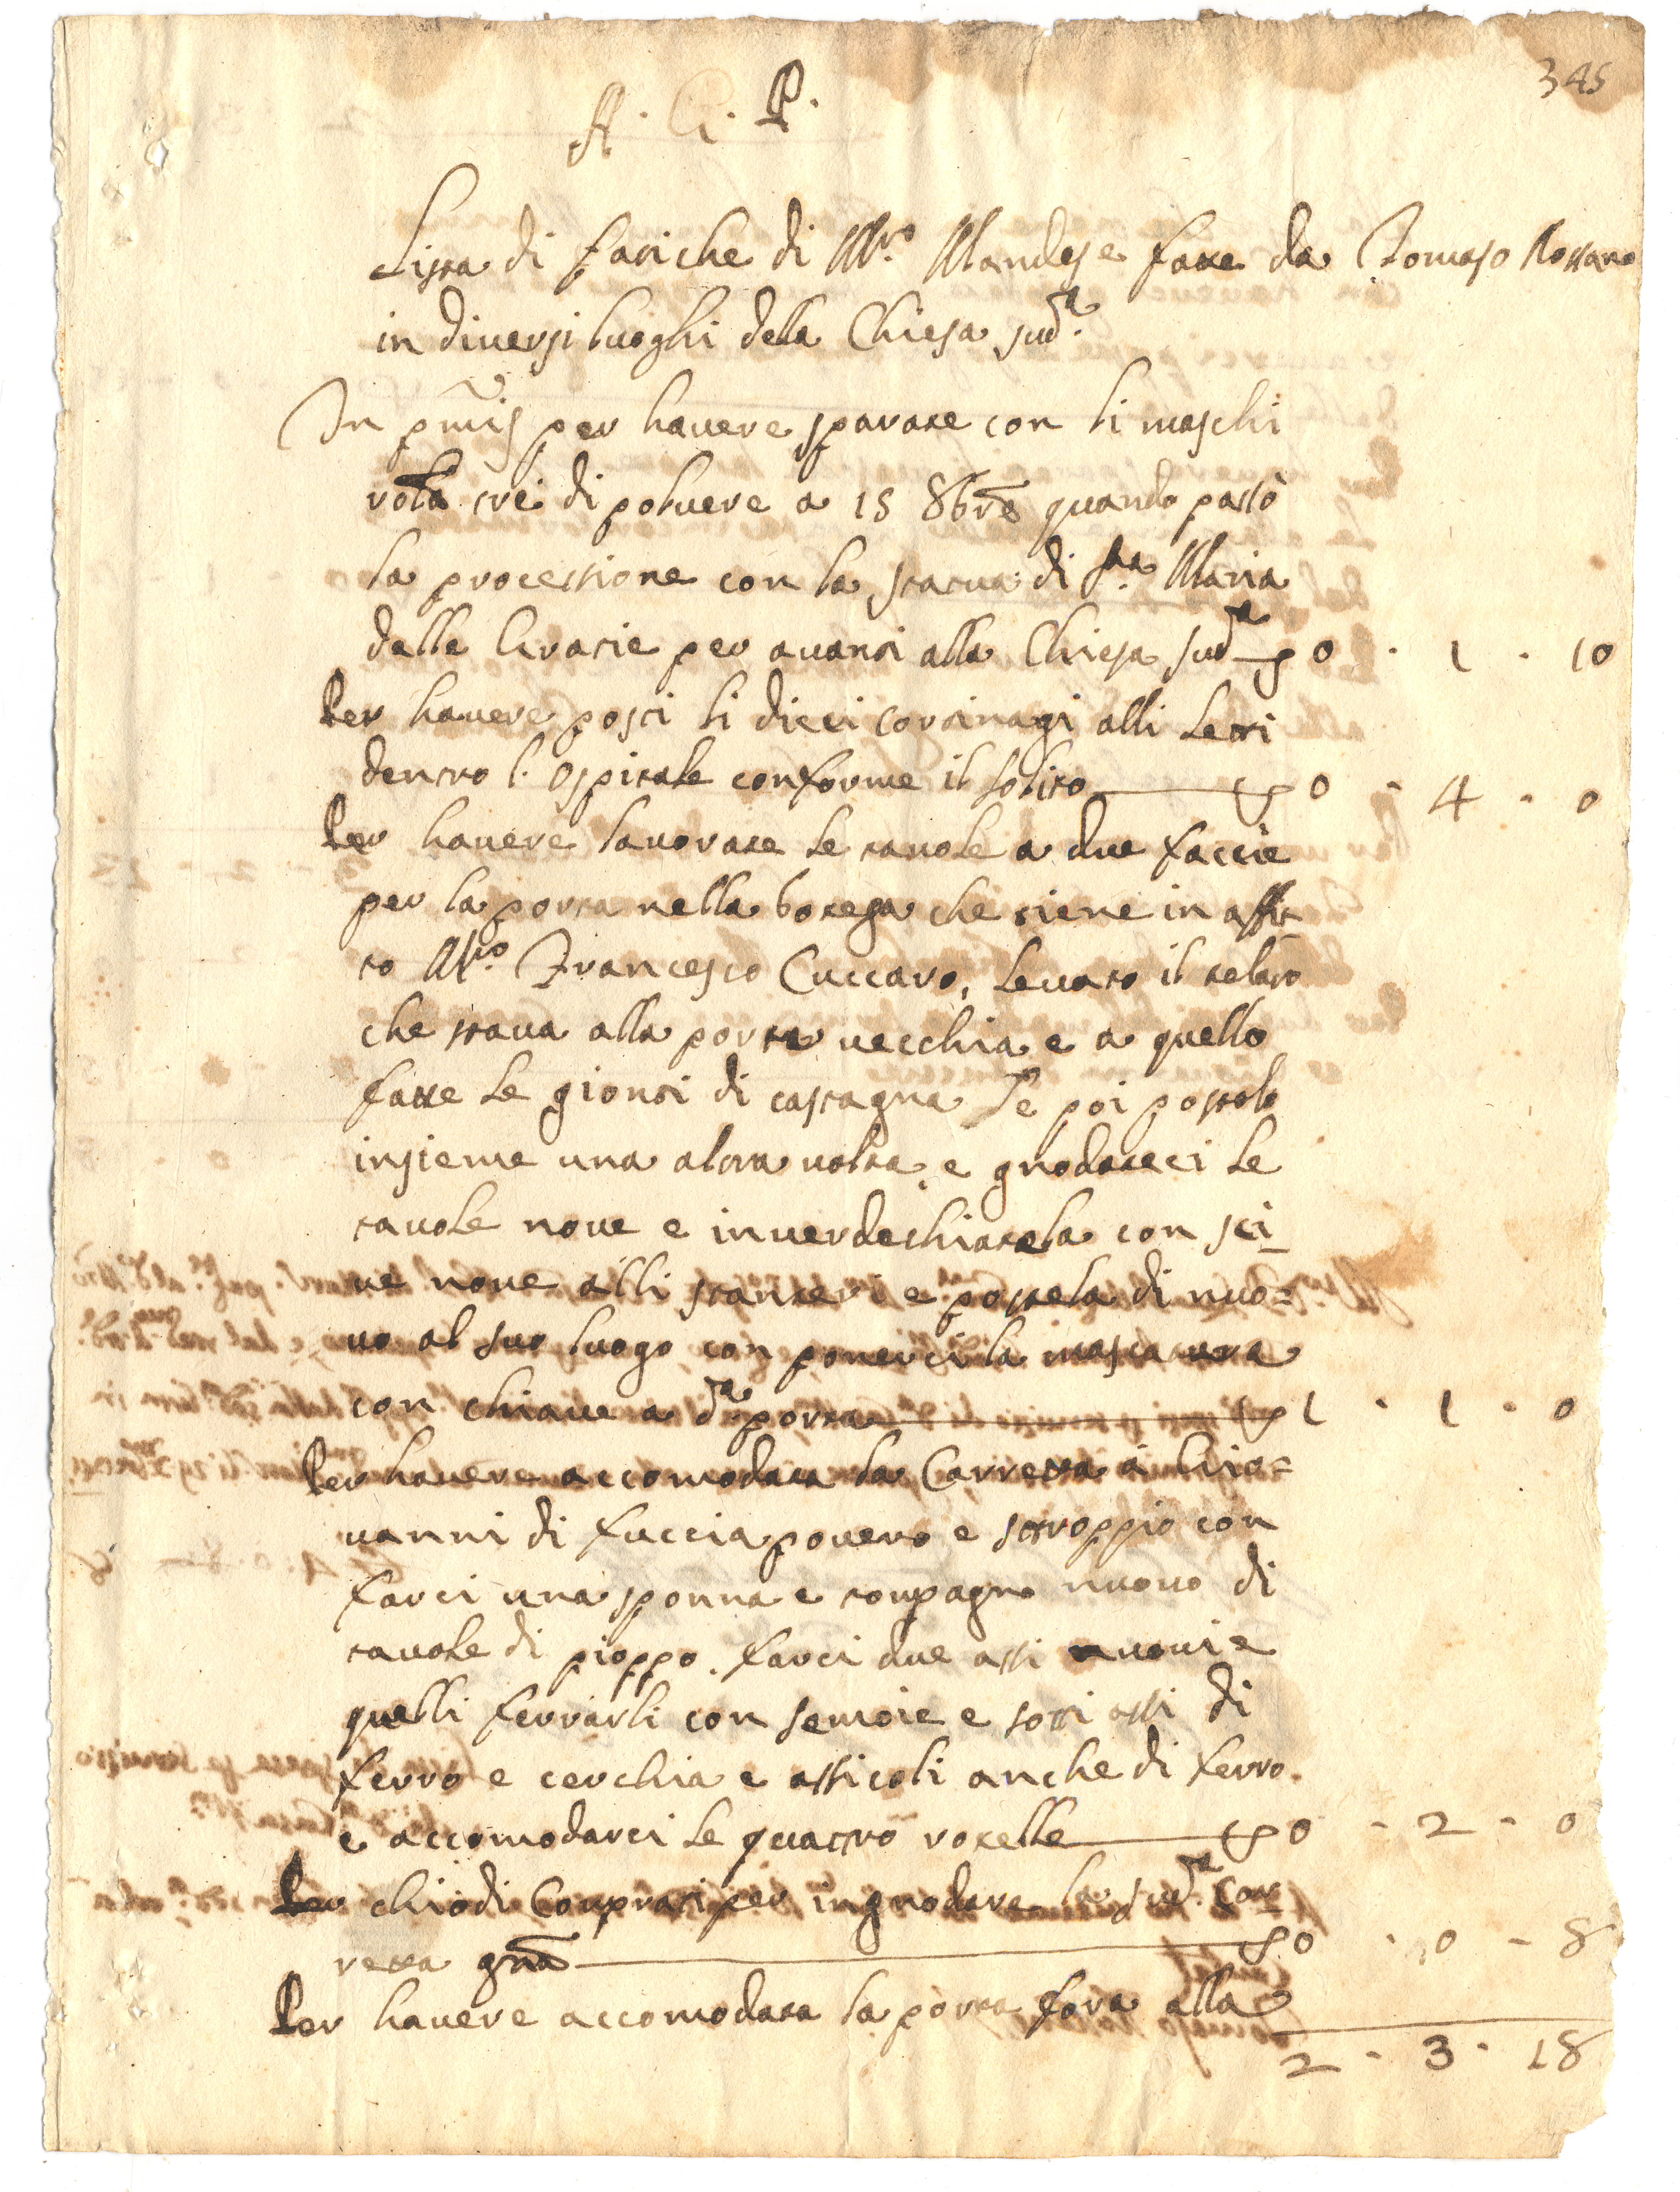 345
A. G. P.
Lista di fatiche di M.ro Mandese fatte da Tomaso Rossano
in diversi luoghi della Chiesa sud.a
In pmis per havere sparate con li maschi
rota trè di polvere a 15 8bre quando passò
la processione con la statua di S.ta Maria
delle Gratie per avanti alla Chiesa sud.a 0 . 1 . 10
Per havere posti li dieci cortinagi alli letti
dentro l'ospitale conforme il solito 0 . 4 . 0
Per havere lavorate le tavole a due faccie
per la porta nella botega che tiene in affit-
to M.ro Francesco Cuccaro, levato il telaro
che stava alla porta vecchia e a quello
fatte le gionti di castagna e poi postolo
insieme una altra volta e gnodateci le
tavole nove e inverdechiatela con sci-
ve nove alli stanteri e postela di nuo=
vo al suo luogo con ponerci la mascatura
con chiave a d.a porta 1 . 1 . 0
Per havere accomodata la Carretta à Gio=
vanni di fuccia povero e stroppio con
farci una sponna e compagno nuovo di
tavole di pioppo. farci due assi nuovi e
quelli ferrarli con semoie e sotti assi di
ferro e cerchia e assicoli anche di ferro.
e accomodarci le quattro rotelle 0 . 2 . 0
Per chiodi Comprati per ingnodare la sud.a Car-
retta gna 0 . 0 - 8
Per havere accomodata la porta fora alla
2 . 3 . 18